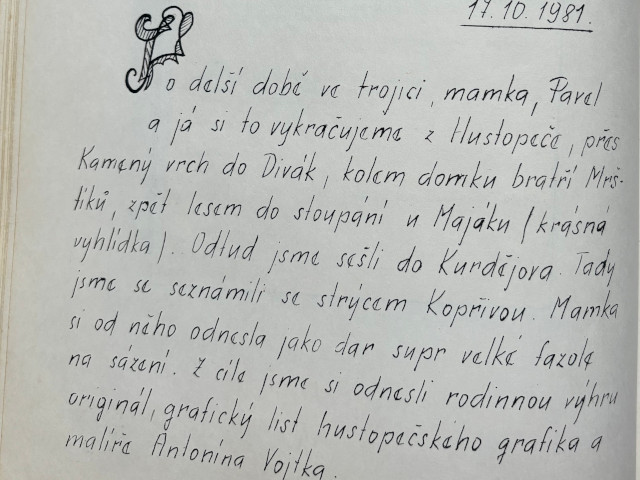 17. 10. 1981.
Po delší době ve trojici, mamka, Pavel
a já si to vykračujeme z Hustopeče, přes
Kamený vrch do Divák, kolem domku bratří Mrš-
tíků, zpět lesem do stoupání u Majáku (krásná
vyhlídka). Odtud jsme sešli do Kurdějova. Tady
jsme se seznámili se strýcem Kopřivou. Mamka
si od něho odnesla jako dar supr velké fazole
na sázení. Z cíle jsme si odnesli rodinnou výhru
originál, grafický list hustopečského grafika a
malíře Antonína Vojtka.